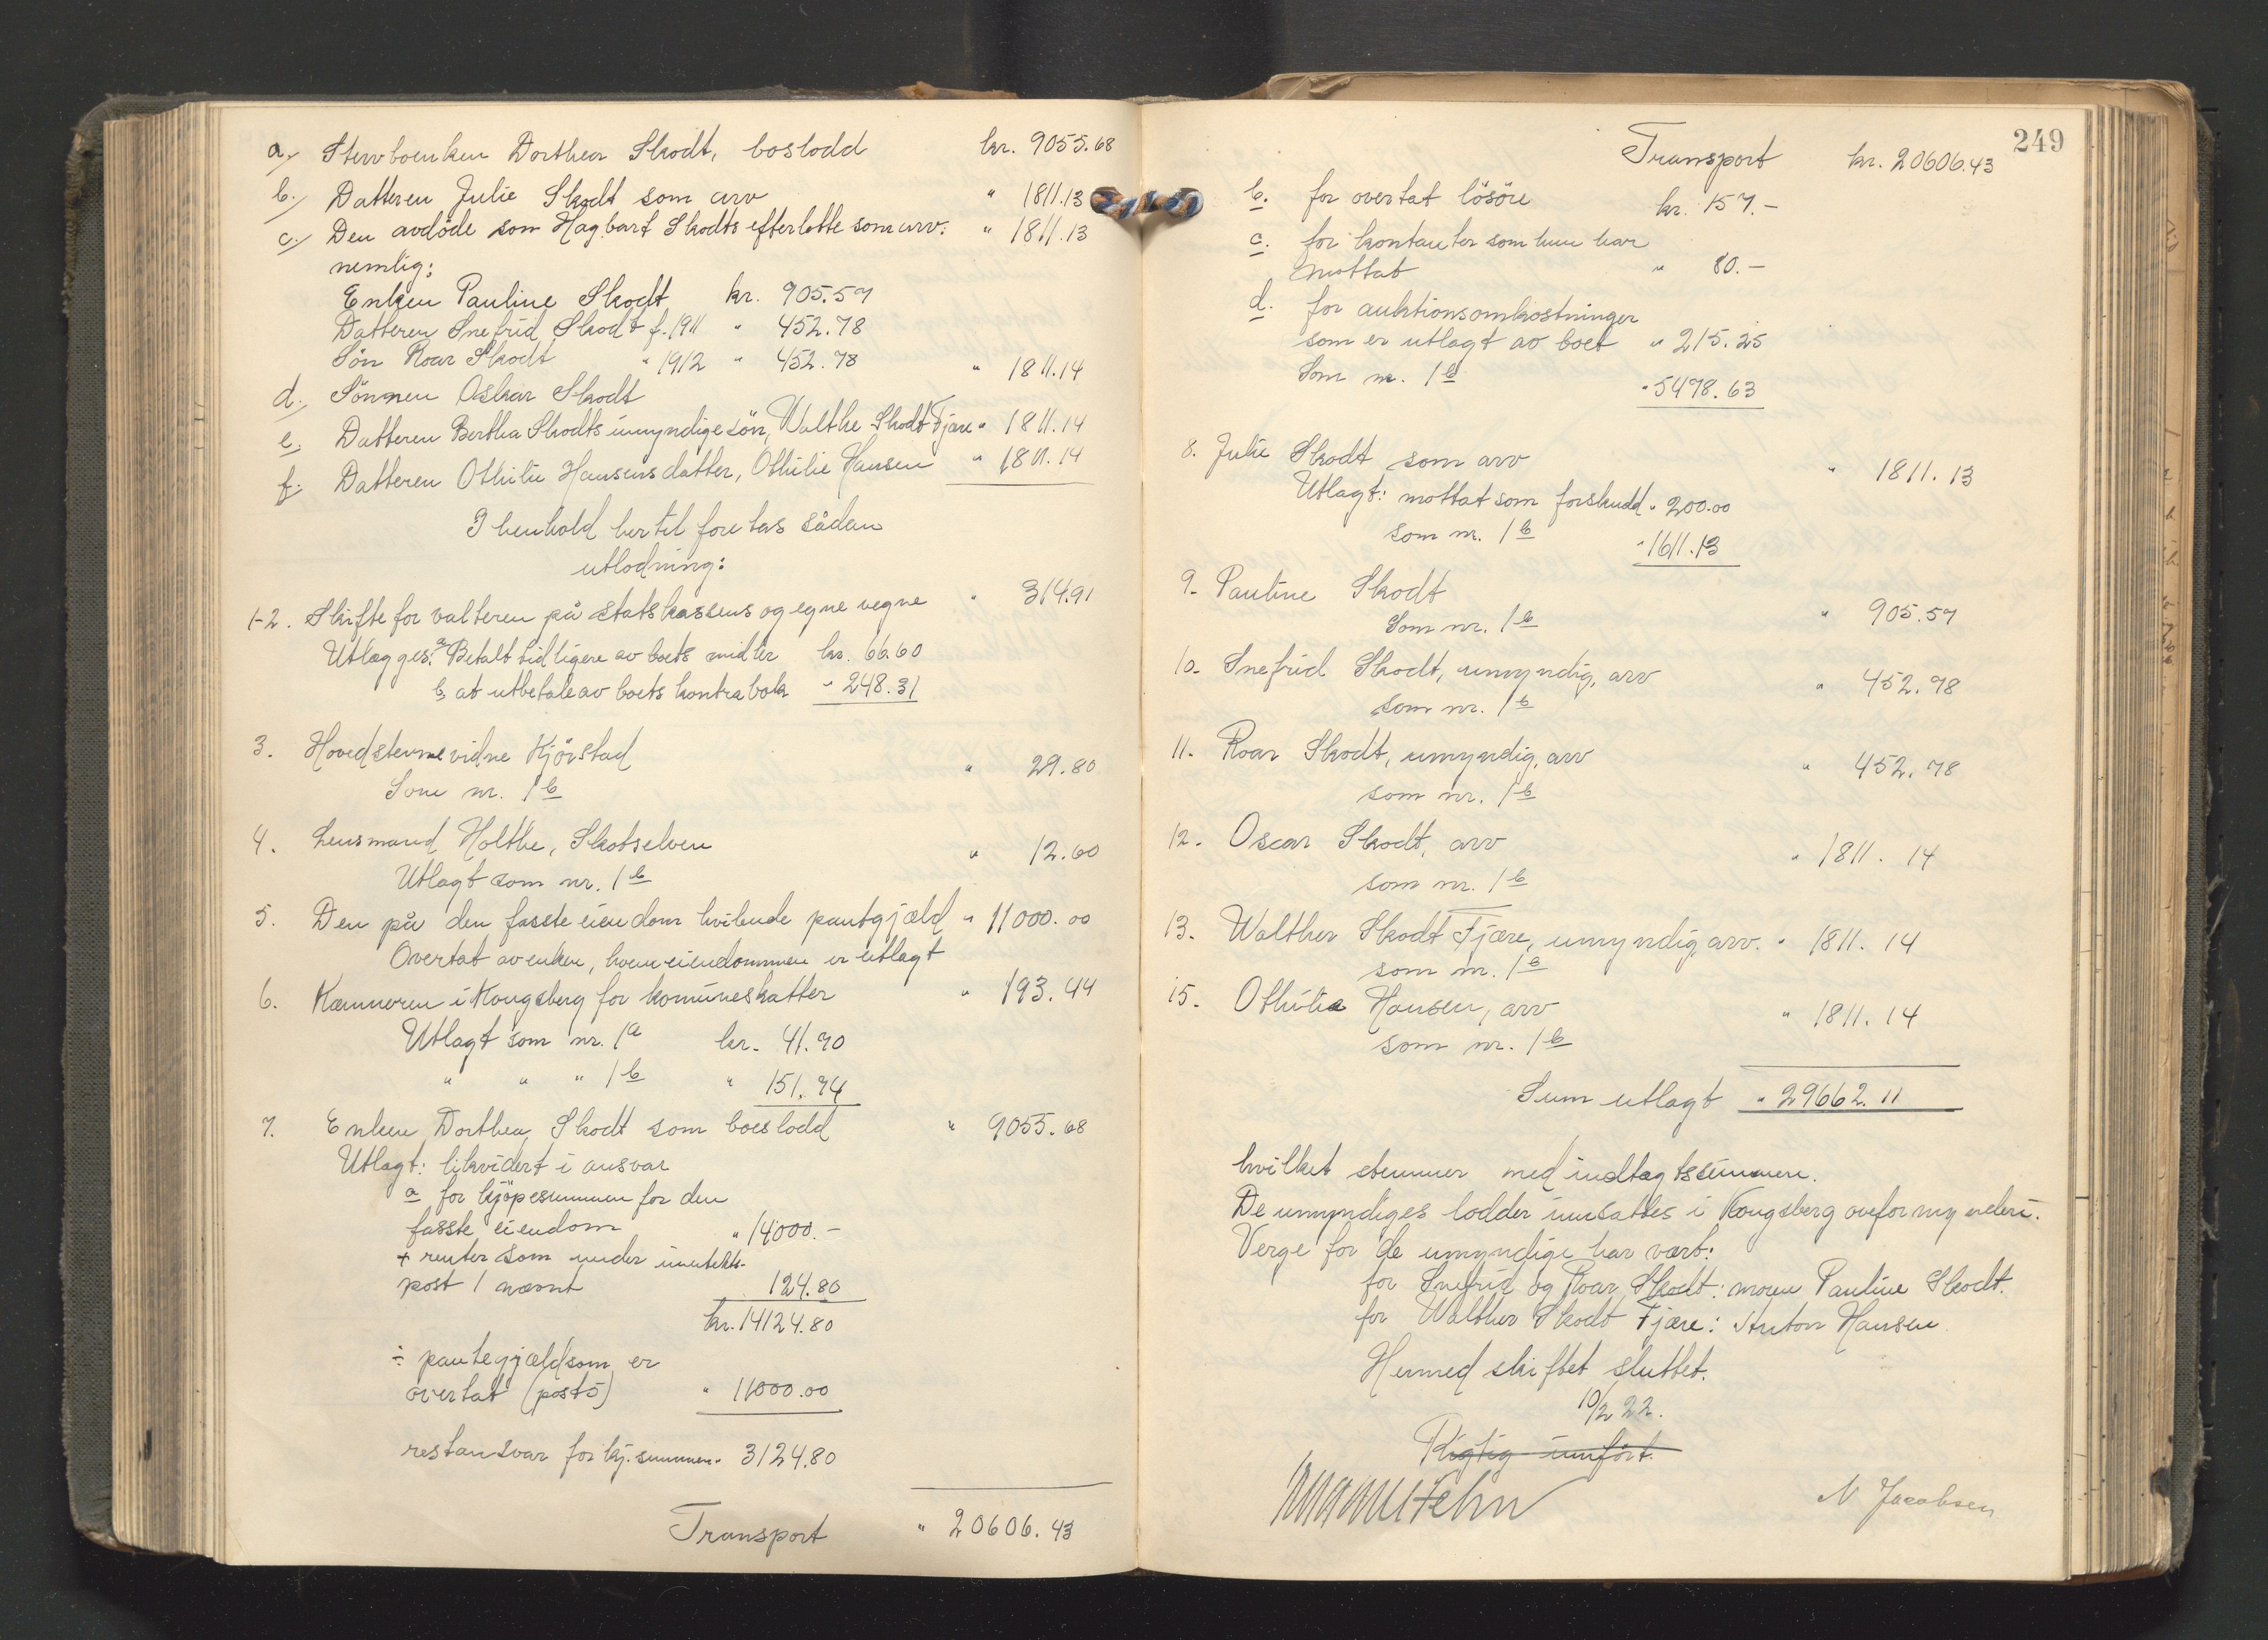 a/ Stervboenken Dorthea Skodt, boslodd kr. 9055.68
b./ Datteren Julie Skodt som arv " 1811.13
c./ Den avdöde søn Hagbart Skodts efterlatte som arv: " 1811.13
nemlig:
Enken Pauline Skodt kr. 905.57
Datteren Snefrid Skodt f. 1911 " 452.78
Sön Roar Skodt " 1912 " 452.78
d./ Sönnen Oskar Skodt " 1811.14
e. Datteren Bertha Skodts umyndige sön, Walthe Skodt Fjære " 1811.14
f. Datteren Othilie Hansens datter, Othilie Hansen " 1811.14
I henhold hertil foretas sådan
utlodning:
1-2. Skifteforvalteren på statskassens og egne vegne " 314.91
Utlægges: a Betalt tidligere av boets midler kr. 66.60
b at utbetale av boets kontrabok " 248.31
3. Hovedstevnevidne Kjörstad " 29.80
Som nr. 1 b
4. Lensmand Holthe, Skotselven " 12.60
Utlagt som nr. 1 b
5. Den på den fasste eiendom hvilende pantgjæld " 11000.00
Overtat av enken, hvem eiendommen er utlagt
6. Kæmneren i Kongsberg for komuneskatter " 193.44
Utlagt som nr. 1 a kr. 41.70
" " " 1 b " 151.74
7. Enken Dorthea Skodt som boeslodd " 9055.68
Utlagt: likvidert i ansvar
a for kjöpesummen for den
fasste eiendom " 14000.-
+ renter som under inntekts-
post 1 nævnt 124.80
kr. 14124.80
÷ pantegjæld som er
overtat (post 5) " 11000.00
restansvar for kj.summen " 3124.80
Transport " 20606.43
249
Transport kr. 20606.43
b. for overtat lösöre kr. 157.-
c. for kontanter som hun har
mottat " 80.-
d. for auktionsomkostninger
som er utlagt av boet " 215.25
Som nr. 1 b " 5478.63
8. Julie Skodt som arv " 1811.13
Utlagt: mottat som forskudd " 200.00
som nr. 1 b " 1611.13
9. Pauline Skodt " 905.57
Som nr. 1 b
10. Snefrid Skodt, umyndig, arv " 452.78
som nr. 1 b
11. Roar Skodt, umyndig, arv " 452.78
som nr. 1 b
12. Oscar Skodt, arv " 1811.14
som nr. 1 b
13. Walther Skodt Fjære, umyndig, arv. " 1811.14
som nr. 1 b
15. Othilia Hansen, arv " 1811.14
som nr. 1 b
Sum utlagt " 29662.11
hvilket stemmer med indtægtssummen.
De umyndiges lodder innsattes i Kongsberg overformynderi.
Verge for de umyndige har vært:
for Snefrid og Roar Skodt: moren Pauline Skodt.
for Walther Skodt Fjære: Anton Hansen
Hermed skiftet sluttet.
10/2 22.
Rigtig innfört.
N Jacobsen